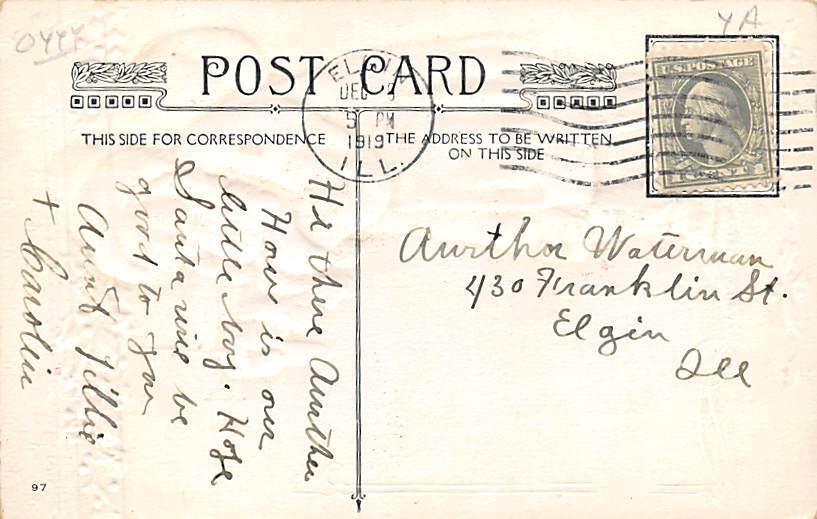 0444
4A
POST CARD
ELGIN
DEC
5 PM
1919
ILL.
U.S. POSTAGE
THIS SIDE FOR CORRESPONDENCE
THE ADDRESS TO BE WRITTEN
ON THIS SIDE
Hi there Aurther
How is our
little boy. Hope
Santa will be
good to you
Aunt Tillie
+ Carolin
Aurthor Waterman
430 Franklin St.
Elgin
Ill
97